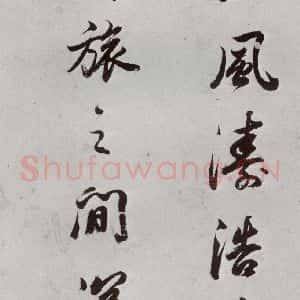 風濤浩
旅之間
ShufawangCN